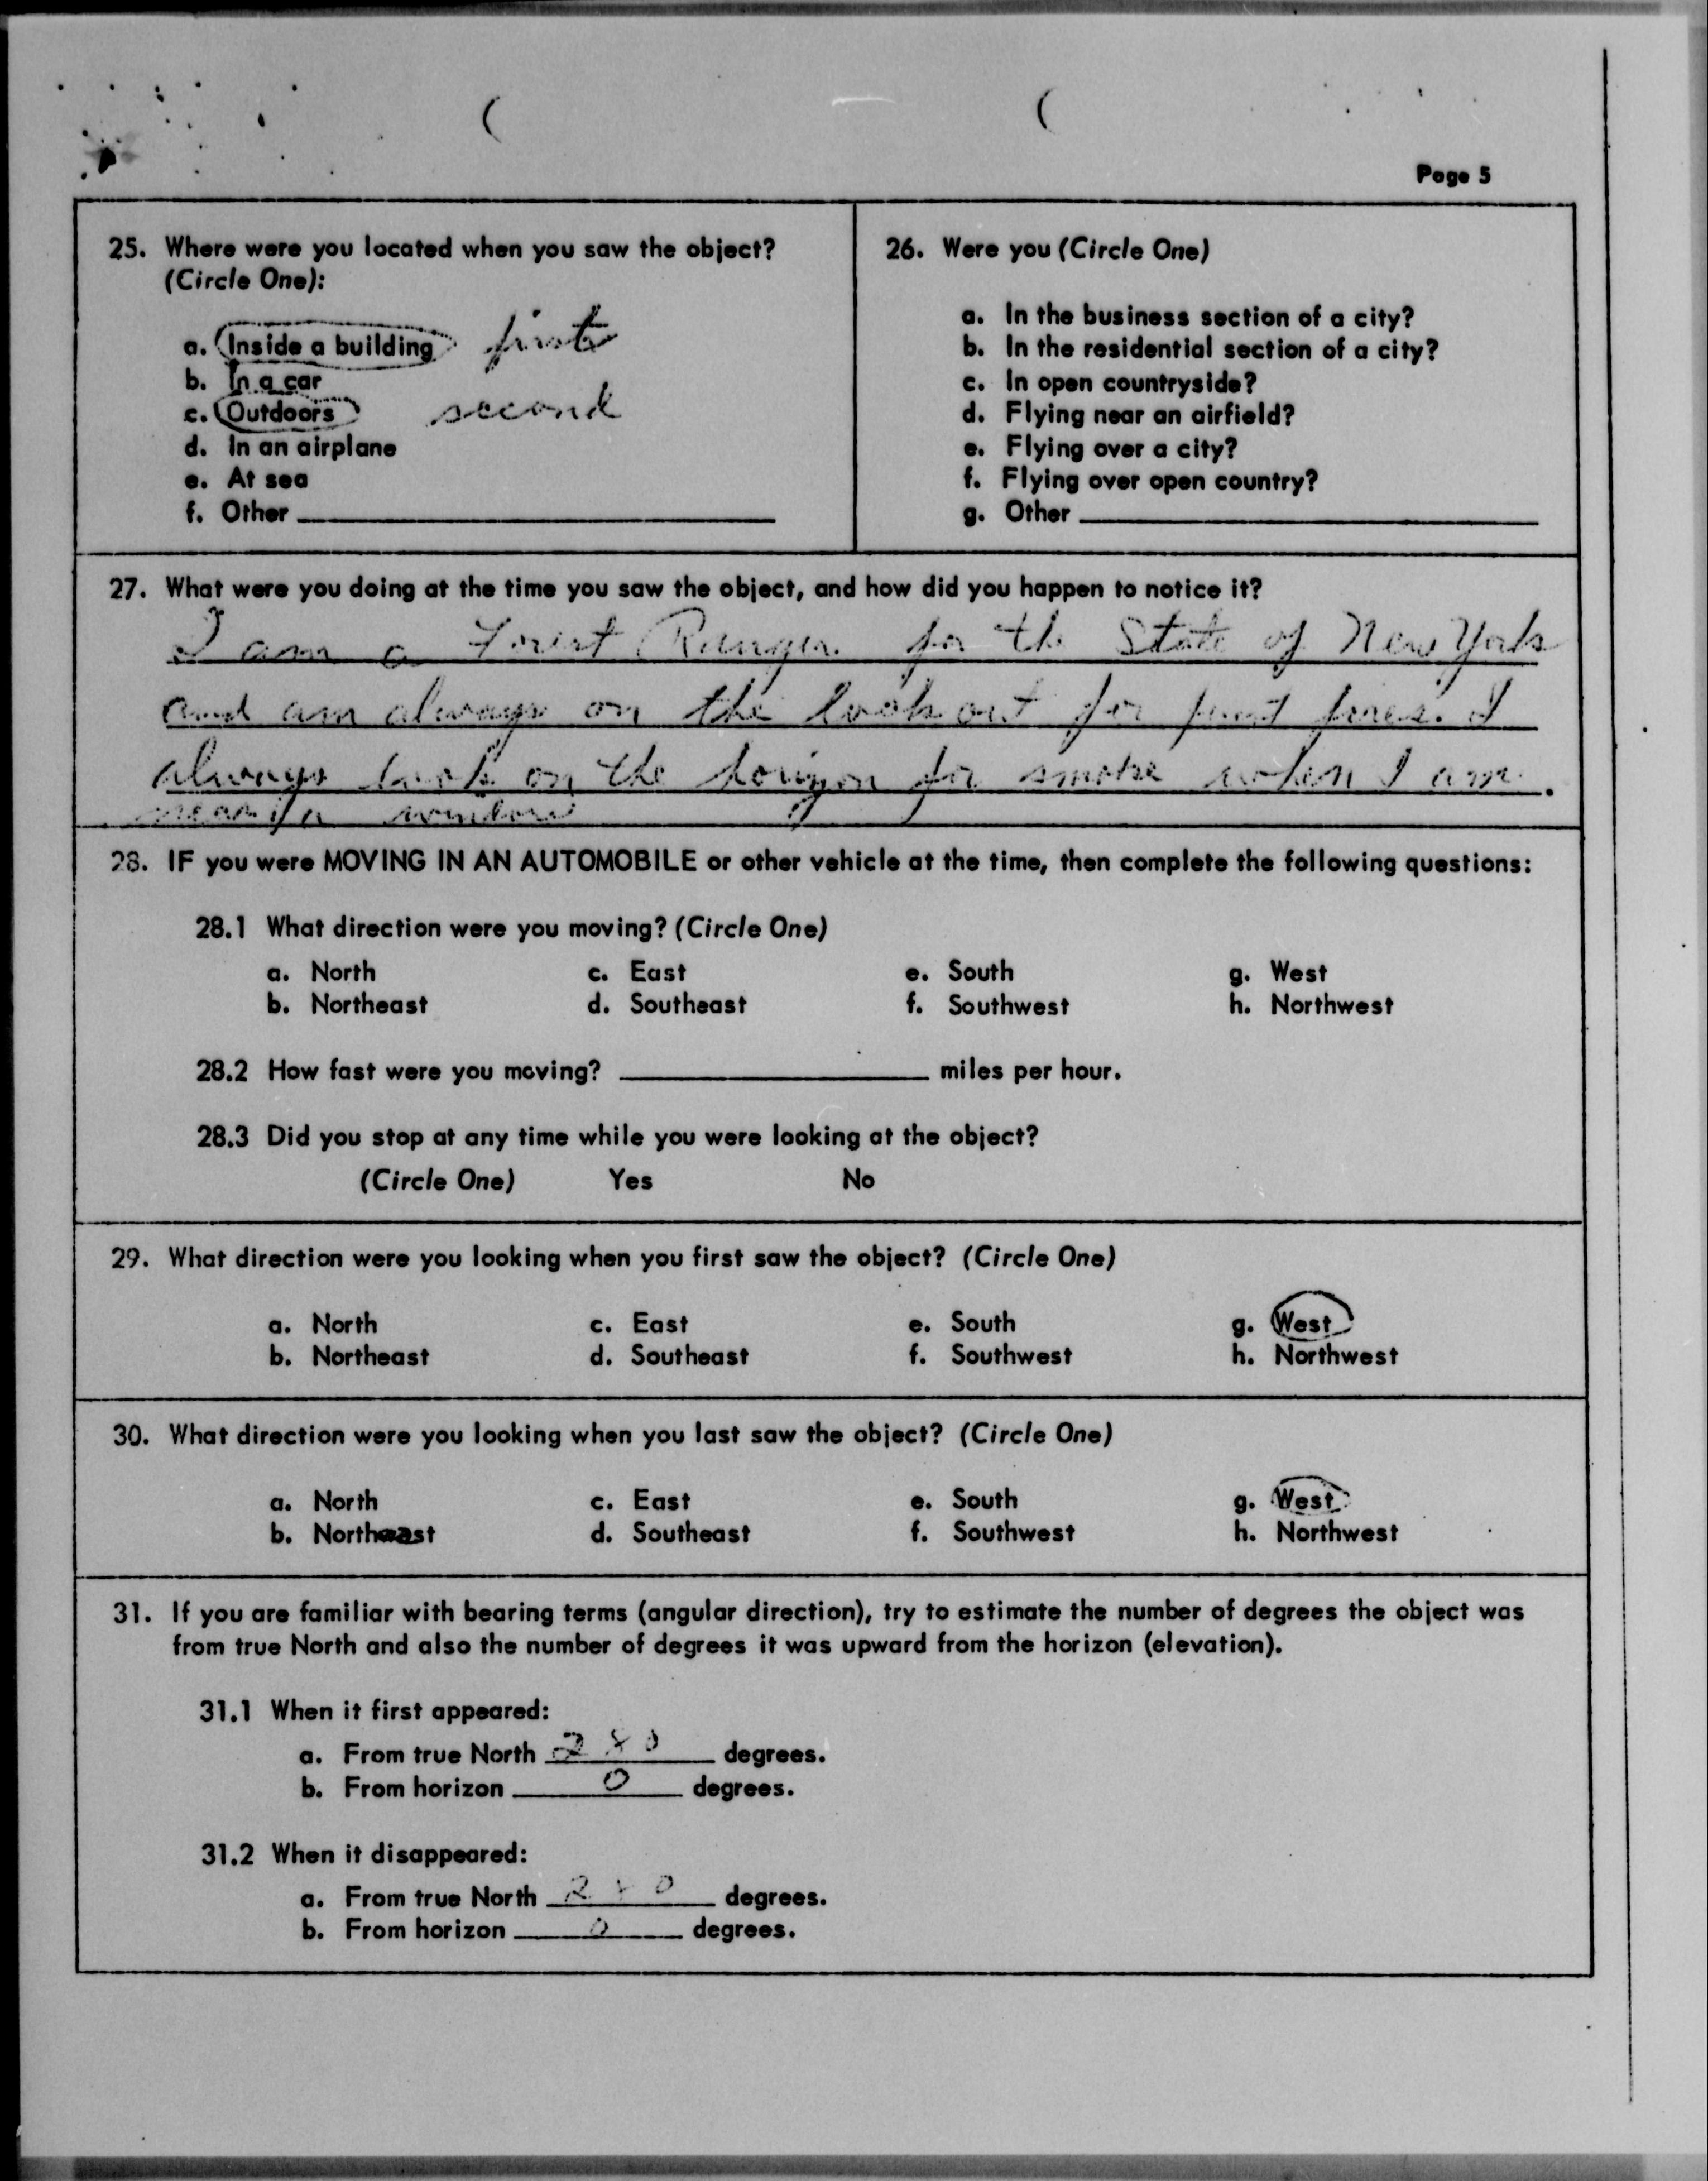 Page 5
25. Where were you located when you saw the object?
(Circle One):
a. Inside a building first
b. In a car
c. Outdoors second
d. In an airplane
e. At sea
f. Other
26. Were you (Circle One)
a. In the business section of a city?
b. In the residential section of a city?
c. In open countryside?
d. Flying near an airfield?
e. Flying over a city?
f. Flying over open country?
g. Other
27. What were you doing at the time you saw the object, and how did you happen to notice it?
I am a Forest Ranger for the State of New York
and am always on the look out for forest fires. I
always look on the horizon for smoke when I am
near a window
28. IF you were MOVING IN AN AUTOMOBILE or other vehicle at the time, then complete the following questions:
28.1 What direction were you moving? (Circle One)
a. North c. East e. South g. West
b. Northeast d. Southeast f. Southwest h. Northwest
28.2 How fast were you moving? miles per hour.
28.3 Did you stop at any time while you were looking at the object?
(Circle One) Yes No
29. What direction were you looking when you first saw the object? (Circle One)
a. North c. East e. South g. West
b. Northeast d. Southeast f. Southwest h. Northwest
30. What direction were you looking when you last saw the object? (Circle One)
a. North c. East e. South g. West
b. Northeast d. Southeast f. Southwest h. Northwest
31. If you are familiar with bearing terms (angular direction), try to estimate the number of degrees the object was
from true North and also the number of degrees it was upward from the horizon (elevation).
31.1 When it first appeared:
a. From true North 280 degrees.
b. From horizon 0 degrees.
31.2 When it disappeared:
a. From true North 280 degrees.
b. From horizon 0 degrees.